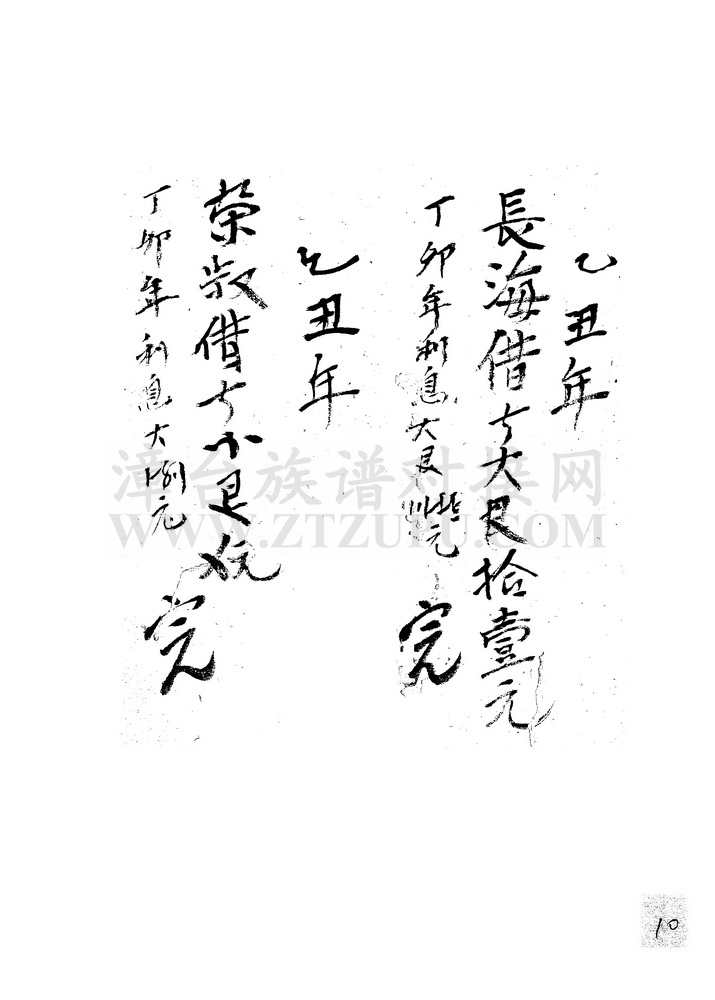 乙丑年
長海借去大艮拾壹元
丁卯年利息大艮元
完
乙丑年
荣叔借去小艮元
丁卯年利息大元
完
漳台族谱对接网
WWW.ZTZUPU.COM
10